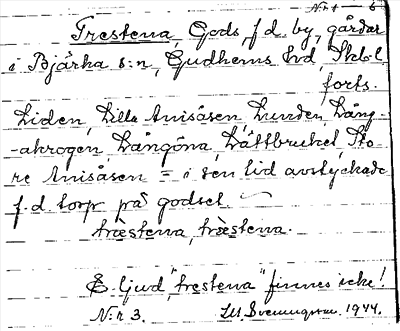 Nr 4 — 5
Trestena, Gods, f.d. by, gårdar
i Bjärka s:n, Gudhems hd, Skb.l.
forts.
Liden, Lilla Anisåsen, Lunden, Lång-
-akrogen, Långöna, Lättbruket, Sto-
re Anisåsen = i sen tid avstyckade
f.d. torp på godset.
træstena, træstena.
E-ljud, "trestena" finnes icke!
N:r 3. 1944.